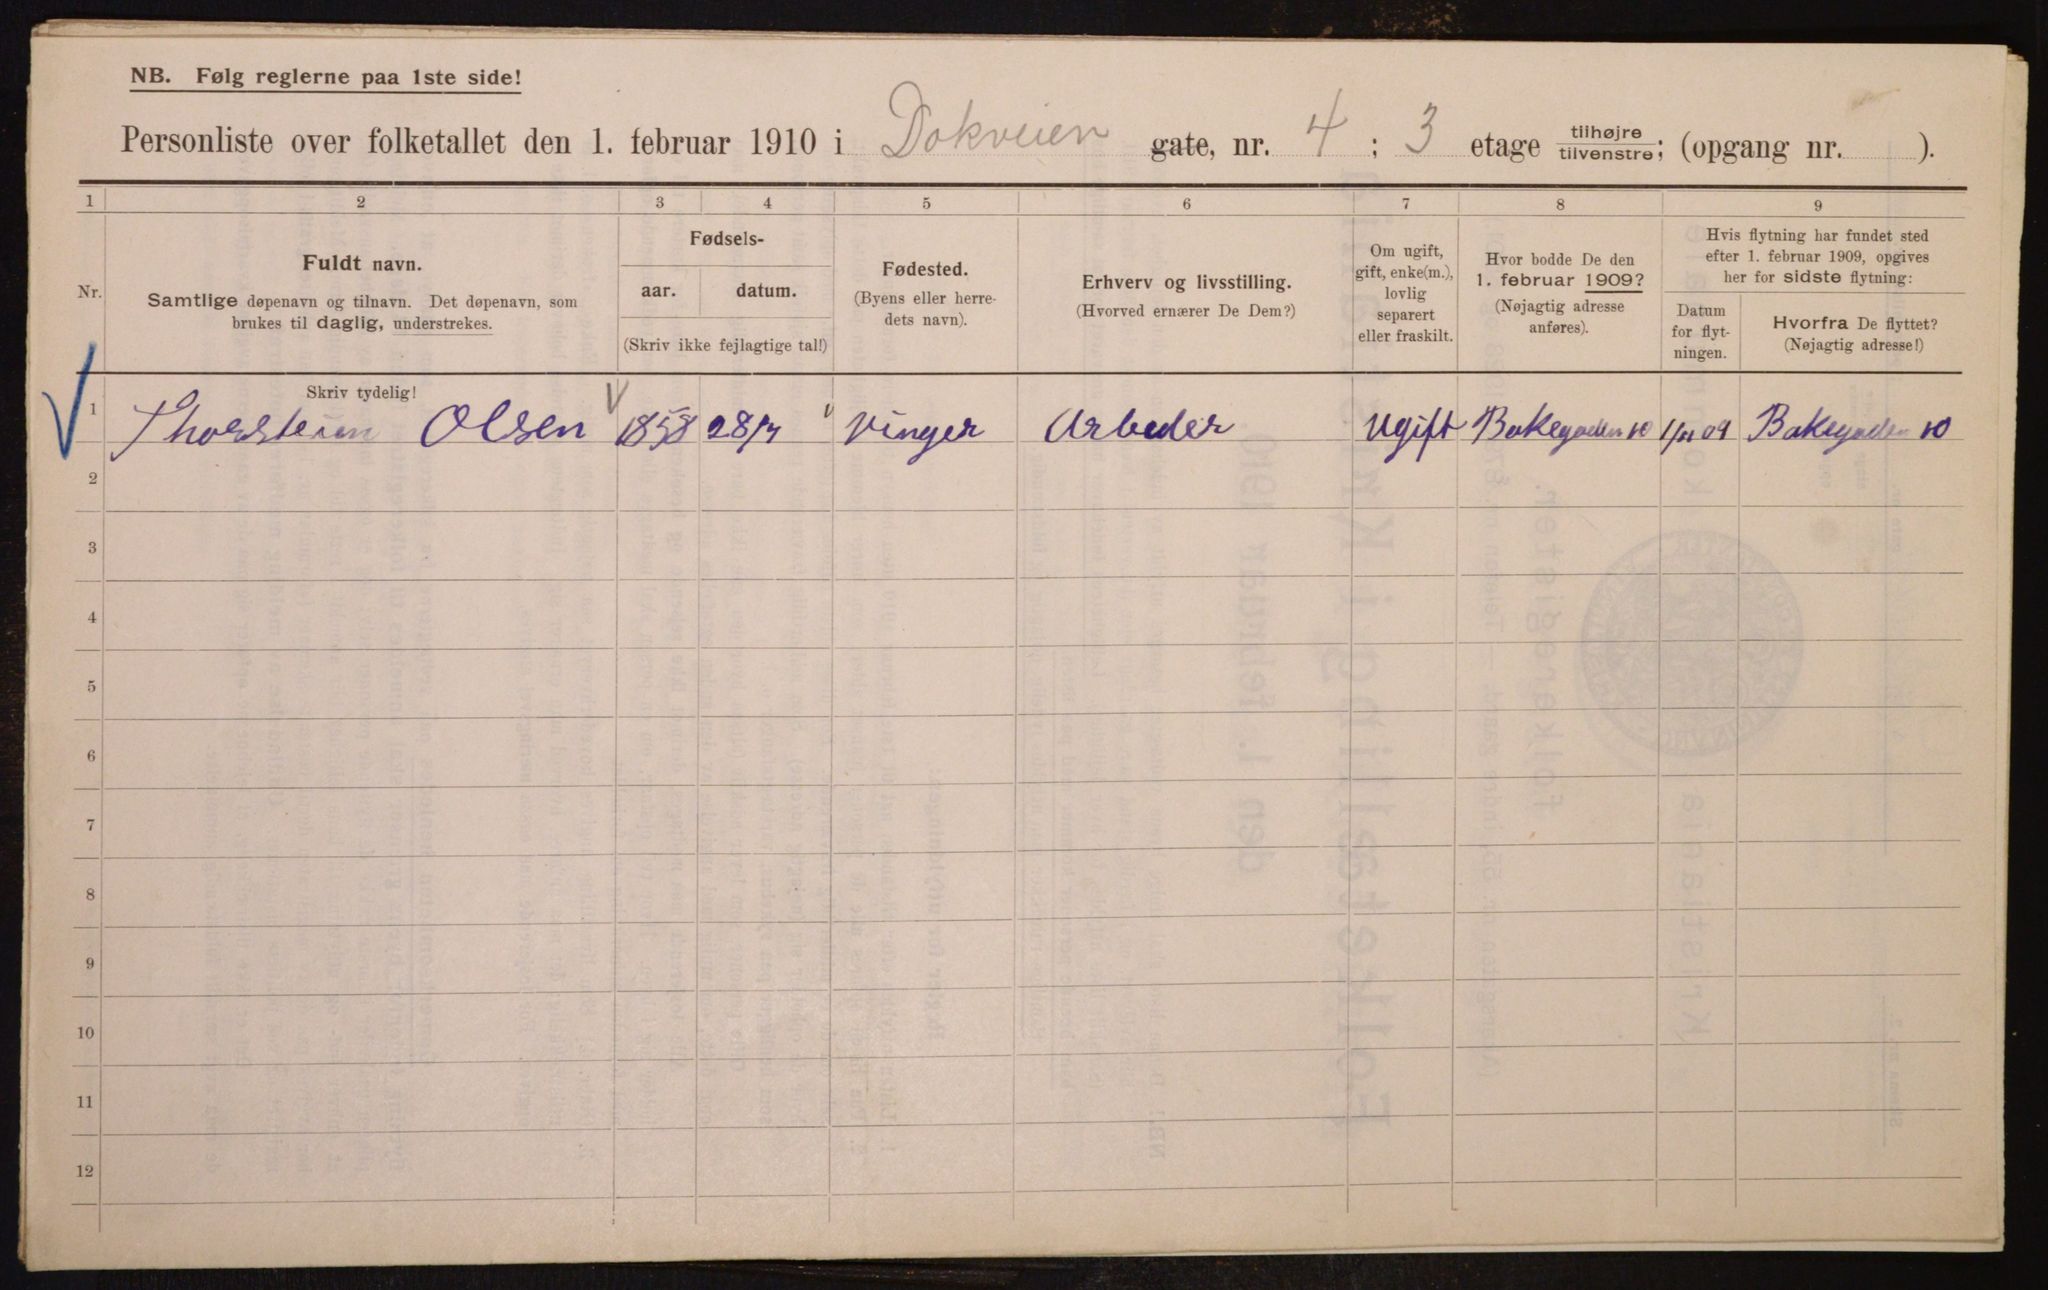 NB. Følg reglerne paa 1ste side!
Personliste over folketallet den 1. februar 1910 i Dokveien gate, nr. 4 ; 3 etage tilhøjre tilvenstre; (opgang nr. ).
1 2 3 4 5 6 7 8 9
Nr.
Fuldt navn.
Samtlige døpenavn og tilnavn. Det døpenavn, som
brukes til daglig, understrekes.
Fødsels-
aar. datum.
(Skriv ikke fejlagtige tal!)
Fødested.
(Byens eller herre-
dets navn).
Erhverv og livsstilling.
(Hvorved ernærer De Dem?)
Om ugift,
gift, enke(m.),
lovlig
separert
eller fraskilt.
Hvor bodde De den
1. februar 1909?
(Nøjagtig adresse
anføres).
Hvis flytning har fundet sted
efter 1. februar 1909, opgives
her for sidste flytning:
Datum
for flyt-
ningen.
Hvorfra De flyttet?
(Nøjagtig adresse!)
Skriv tydelig!
1 Olsen 1858 Vinger Arbeder Ugift Bakegaden 10 09 Bakegaden 10
2
3
4
5
6
7
8
9
10
11
12